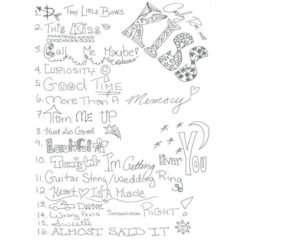 1. Tiny Little Bows
2. This Kiss
3. Call Me Maybe
KISS
4. Curiosity
5 Good TIME
6. More Than A Memory
7 Turn ME UP
8. Hurt So Good
9. Beautiful
10. Tonight I'm Getting Over You
11. Guitar String/Wedding Ring
12. Heart Is A Muscle
13. DRIVE
14 Wrong Feels Soooooooo RIGHT!
15. Sweetie
16. ALMOST SAID IT